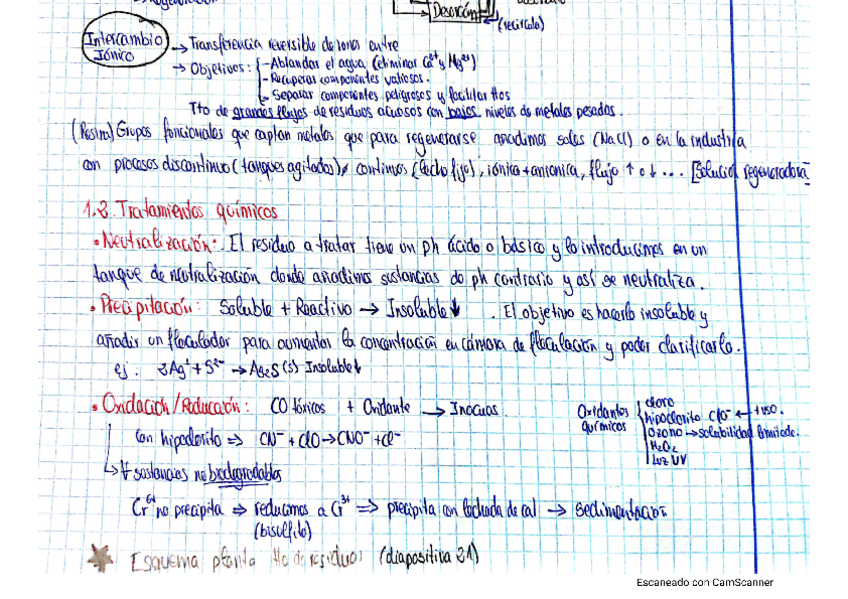 Desorción
(recirculo)
Intercambio
Iónico
→ Transferencia reversible de iones entre
→ Objetivos: - Ablandar el agua (eliminar Ca²⁺ y Mg²⁺)
- Recuperar componentes valiosos.
- Separar componentes peligrosos y facilitar ttos
Tto de grandes flujos de residuos acuosos con bajos niveles de metales pesados.
(Resina) Grupos funcionales que captan metales que para regenerarse añadimos sales (NaCl) o en la industria
con procesos discontinuo (tanques agitados), continuos (lecho fijo), iónica + anionica, flujo ↑ o ↓ ... [Solución regeneradora]
Tratamientos químicos
• Neutralización: El residuo a tratar tiene un ph ácido o básico y lo introducimos en un
tanque de neutralización donde añadimos sustancias de ph contrario y así se neutraliza.
• Precipitación: Soluble + Reactivo → Insoluble ↓ . El objetivo es hacerlo insoluble y
añadir un floculador para aumentar la concentración en cámara de floculación y poder clarificarlo.
ej: 2Ag⁺ + S²⁻ → Ag₂S (s) Insoluble ↓
• Oxidación/Reducción: CO tóxicos + Oxidante → Inocuos.
Oxidantes químicos
cloro
hipoclorito ClO⁻ ← + uso.
Ozono → solubilidad limitada.
H₂O₂
Luz UV
Con hipoclorito ⇒ CN⁻ + ClO⁻ → CNO⁻ + Cl⁻
↳ ∀ sustancias no biodegradables
Cr⁶⁺ no precipita ⇒ reducimos a Cr³⁺ ⇒ precipita con lechada de cal → sedimentación
(bisulfito)
Esquema planta tto de residuos (diapositiva 21)
Escaneado con CamScanner